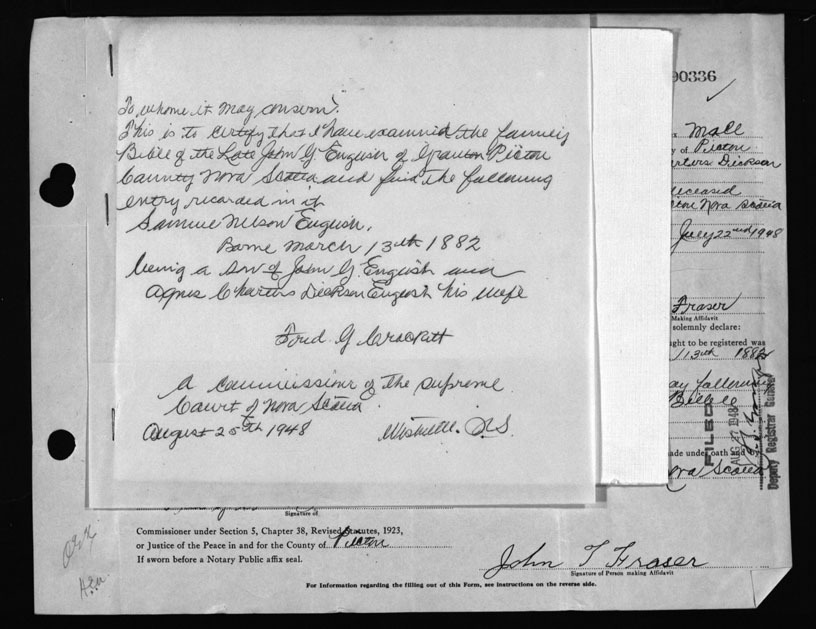 To whome it may consern.
This is to certify that I have examined the family
Bibile of the Late John G English of Granton Picton
County Nova Scotia and find the following
entry recorded in it
Samuel Nelson English.
Borne March 13th 1882
being a son of John G. English and
Agnes Charters Dickson English his wife
Ford G Crockett
A commissionr of the supreme
Court of Nova Scotia
August 25th 1948 Westville. N.S.
90336
Male
y of Picton
arters Dickson
eceased
Nova Scotia
July 22nd 1948
Fraser
Making Affidavit
solemnly declare:
ght to be registered was
13th 1882
ay following
Bibile
ade under oath
ova Scotia
FILED
AUG 27 1948
Deputy Registrar General
Signature of
Commissioner under Section 5, Chapter 38, Revised Statutes, 1923,
or Justice of the Peace in and for the County of Picton
If sworn before a Notary Public affix seal.
John T Fraser
Signature of Person making Affidavit
For Information regarding the filling out of this Form, see instructions on the reverse side.